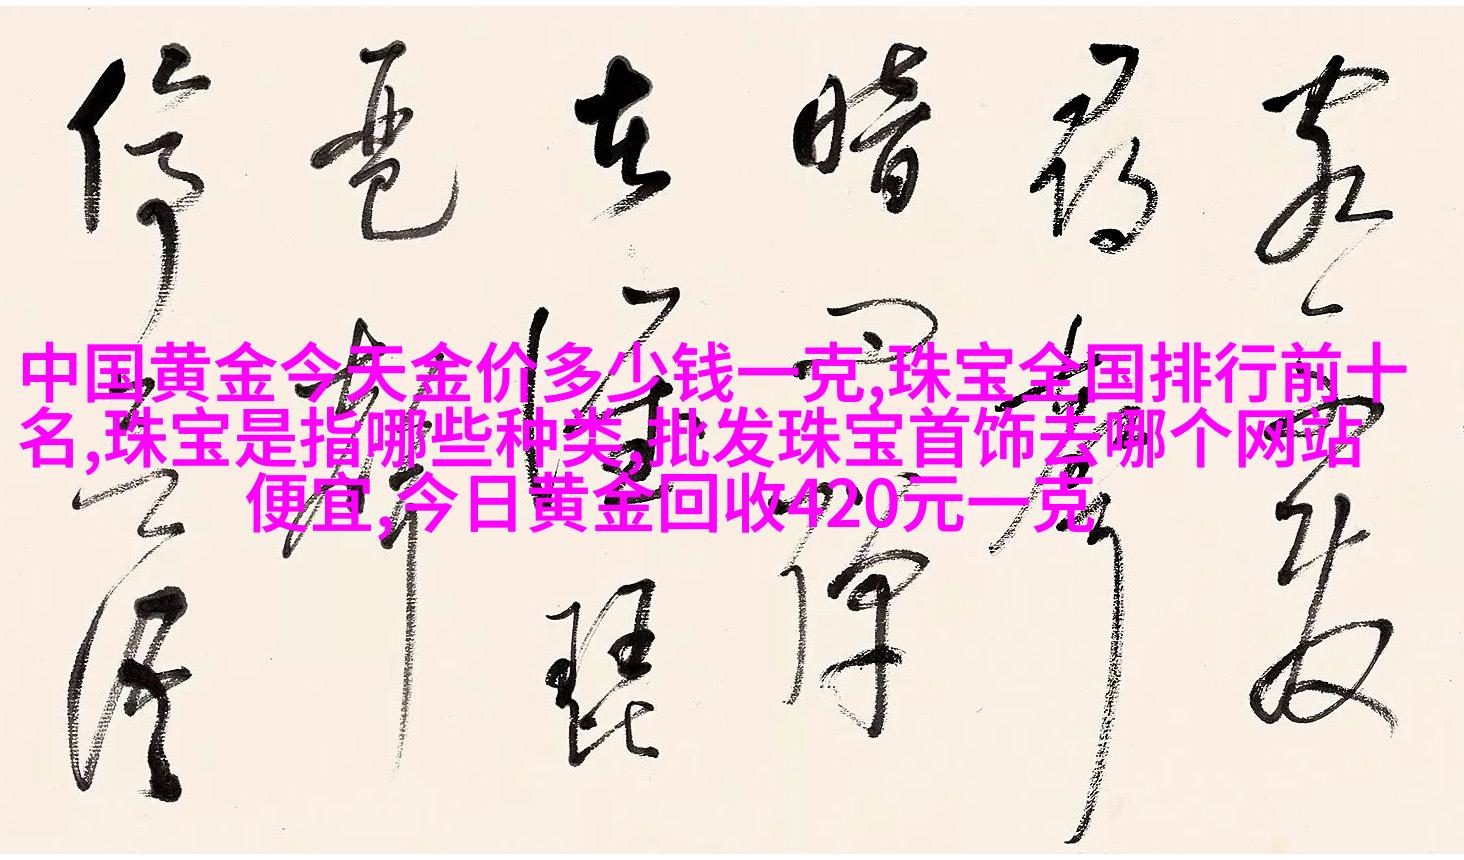 中国黄金今天金价多少钱一克,珠宝全国排行前十
名,珠宝是指哪些种类,批发珠宝首饰去哪个网站
便宜,今日黄金回收420元一克
客
尋聲
暗問彈
者誰琵
琶聲
停